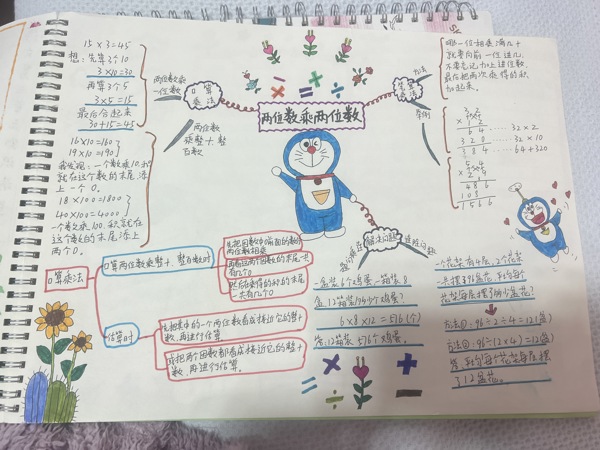 15×3=45
想：先算3个10
3×10=30
再算3个5
3×5=15
最后合起来
30+15=45
16×10=160
19×10=190
我发现：一个数乘10,积
就在这个数的末尾添
上一个0。
18×100=1800
40×100=4000
一个数乘100,积就在
这个数的末尾添上
两个0。
两位数乘
一位数
口算
乘法
两位数
乘整十整
百数
两位数乘两位数
笔算
乘法
方法
举例
哪一位相乘满几十
就要向前一位进几,
不要忘记加上进位数,
最后把两次乘得的积
加起来。
32
×12
64……32×2
320……32×10
384……64+320
54
×29
486
108
1566
口算乘法
口算两位数乘整十、整百数时
先把因数中0前面的数与
两位数相乘
再看这两个因数的末尾一共
有几个0
然后在乘得的积的末尾
一共有几个0
估算时
先把其中的一个两位数看成接近它的整十
数,再进行估算。
或把两个因数都看成接近它的整十
数,再进行估算。
解决问题
连除问题
一盒装6个鸡蛋,一箱装8
盒,12箱装
6×8×12=576(个)
答:12箱装576个鸡蛋。
一个花架有4层,2个花架
共摆了96盆花,平均每个
花架每层摆了多少盆花?
方法①:96÷2÷4=12(盆)
方法②:96÷(2×4)=12(盆)
答:平均每个花架每层摆
了12盆花。